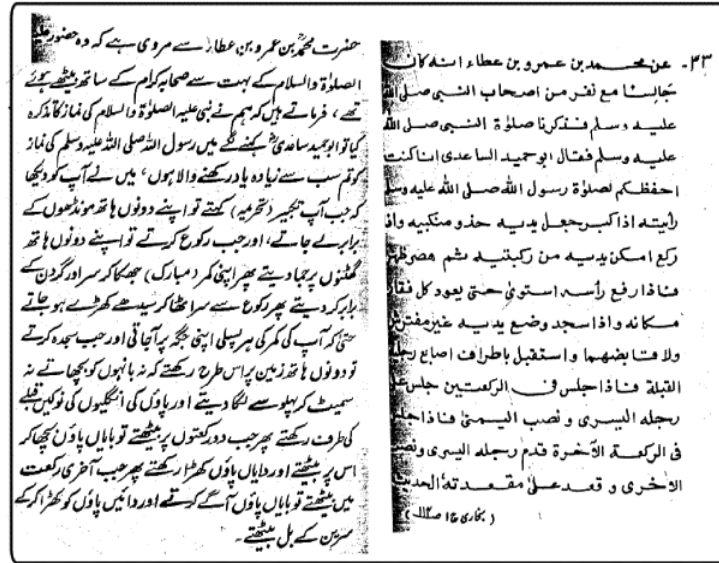 ۴۳۔ عن محمد بن عمرو بن عطاء انه كان
جالسا مع نفر من اصحاب النبى صلى الله
عليه وسلم فذكرنا صلوٰة النبى صلى الله
عليه وسلم فقال ابو حميد الساعدى انا كنت
احفظكم لصلوٰة رسول الله صلى الله عليه وسلم
رأيته اذا كبر جعل يديه حذو منكبيه واذا
ركع امكن يديه من ركبتيه ثم هصر ظهره
فاذا رفع رأسه استوىٰ حتى يعود كل فقار
مكانه واذا سجد وضع يديه غير مفترش
ولا قابضهما واستقبل باطراف اصابع رجليه
القبلة فاذا جلس فى الركعتين جلس على
رجله اليسرى ونصب اليمنىٰ فاذا جلس
فى الركعة الآخرة قدم رجله اليسرى ونصب
الاخرى وقعد علىٰ مقعدته الحديث
(بخارى ج۱ ص۱۱۴)
حضرت محمدؒ بن عمرو بن عطاءؒ سے مروی ہے کہ وہ حضور علیہ
الصلوٰة والسلام کے بہت سے صحابہ کرام کے ساتھ بیٹھے ہوئے
تھے، فرماتے ہیں کہ ہم نے نبی علیہ الصلوٰة والسلام کی نماز کا تذکرہ
کیا تو ابو حمید ساعدیؓ کہنے لگے میں رسول اللہ صلی اللہ علیہ وسلم کی نماز
کو تم سب سے زیادہ یاد رکھنے والا ہوں، میں نے آپ کو دیکھا
کہ جب آپ تکبیر (تحریمہ) کہتے تو اپنے دونوں ہاتھ مونڈھوں کے
برابر لے جاتے، اور جب رکوع کرتے تو اپنے دونوں ہاتھ
گھٹنوں پر جما دیتے پھر اپنی کمر (مبارک) جھکا کر سر اور گردن کے
برابر کر دیتے پھر رکوع سے سر اٹھا کر سیدھے کھڑے ہو جاتے
حتیٰ کہ آپ کی کمر کی ہر پسلی اپنی جگہ پر آجاتی اور جب سجدہ کرتے
تو دونوں ہاتھ زمین پر اس طرح رکھتے کہ نہ بانہوں کو بچھاتے نہ
سمیٹ کر پہلو سے لگا دیتے اور پاؤں کی انگلیوں کی نوکیں قبلے
کی طرف رکھتے پھر جب دو رکعتوں پر بیٹھتے تو بایاں پاؤں بچھا کر
اس پر بیٹھتے اور دایاں پاؤں کھڑا رکھتے پھر جب آخری رکعت
میں بیٹھتے تو بایاں پاؤں آگے کرتے اور دائیں پاؤں کو کھڑا کر کے
سرین کے بل بیٹھتے۔